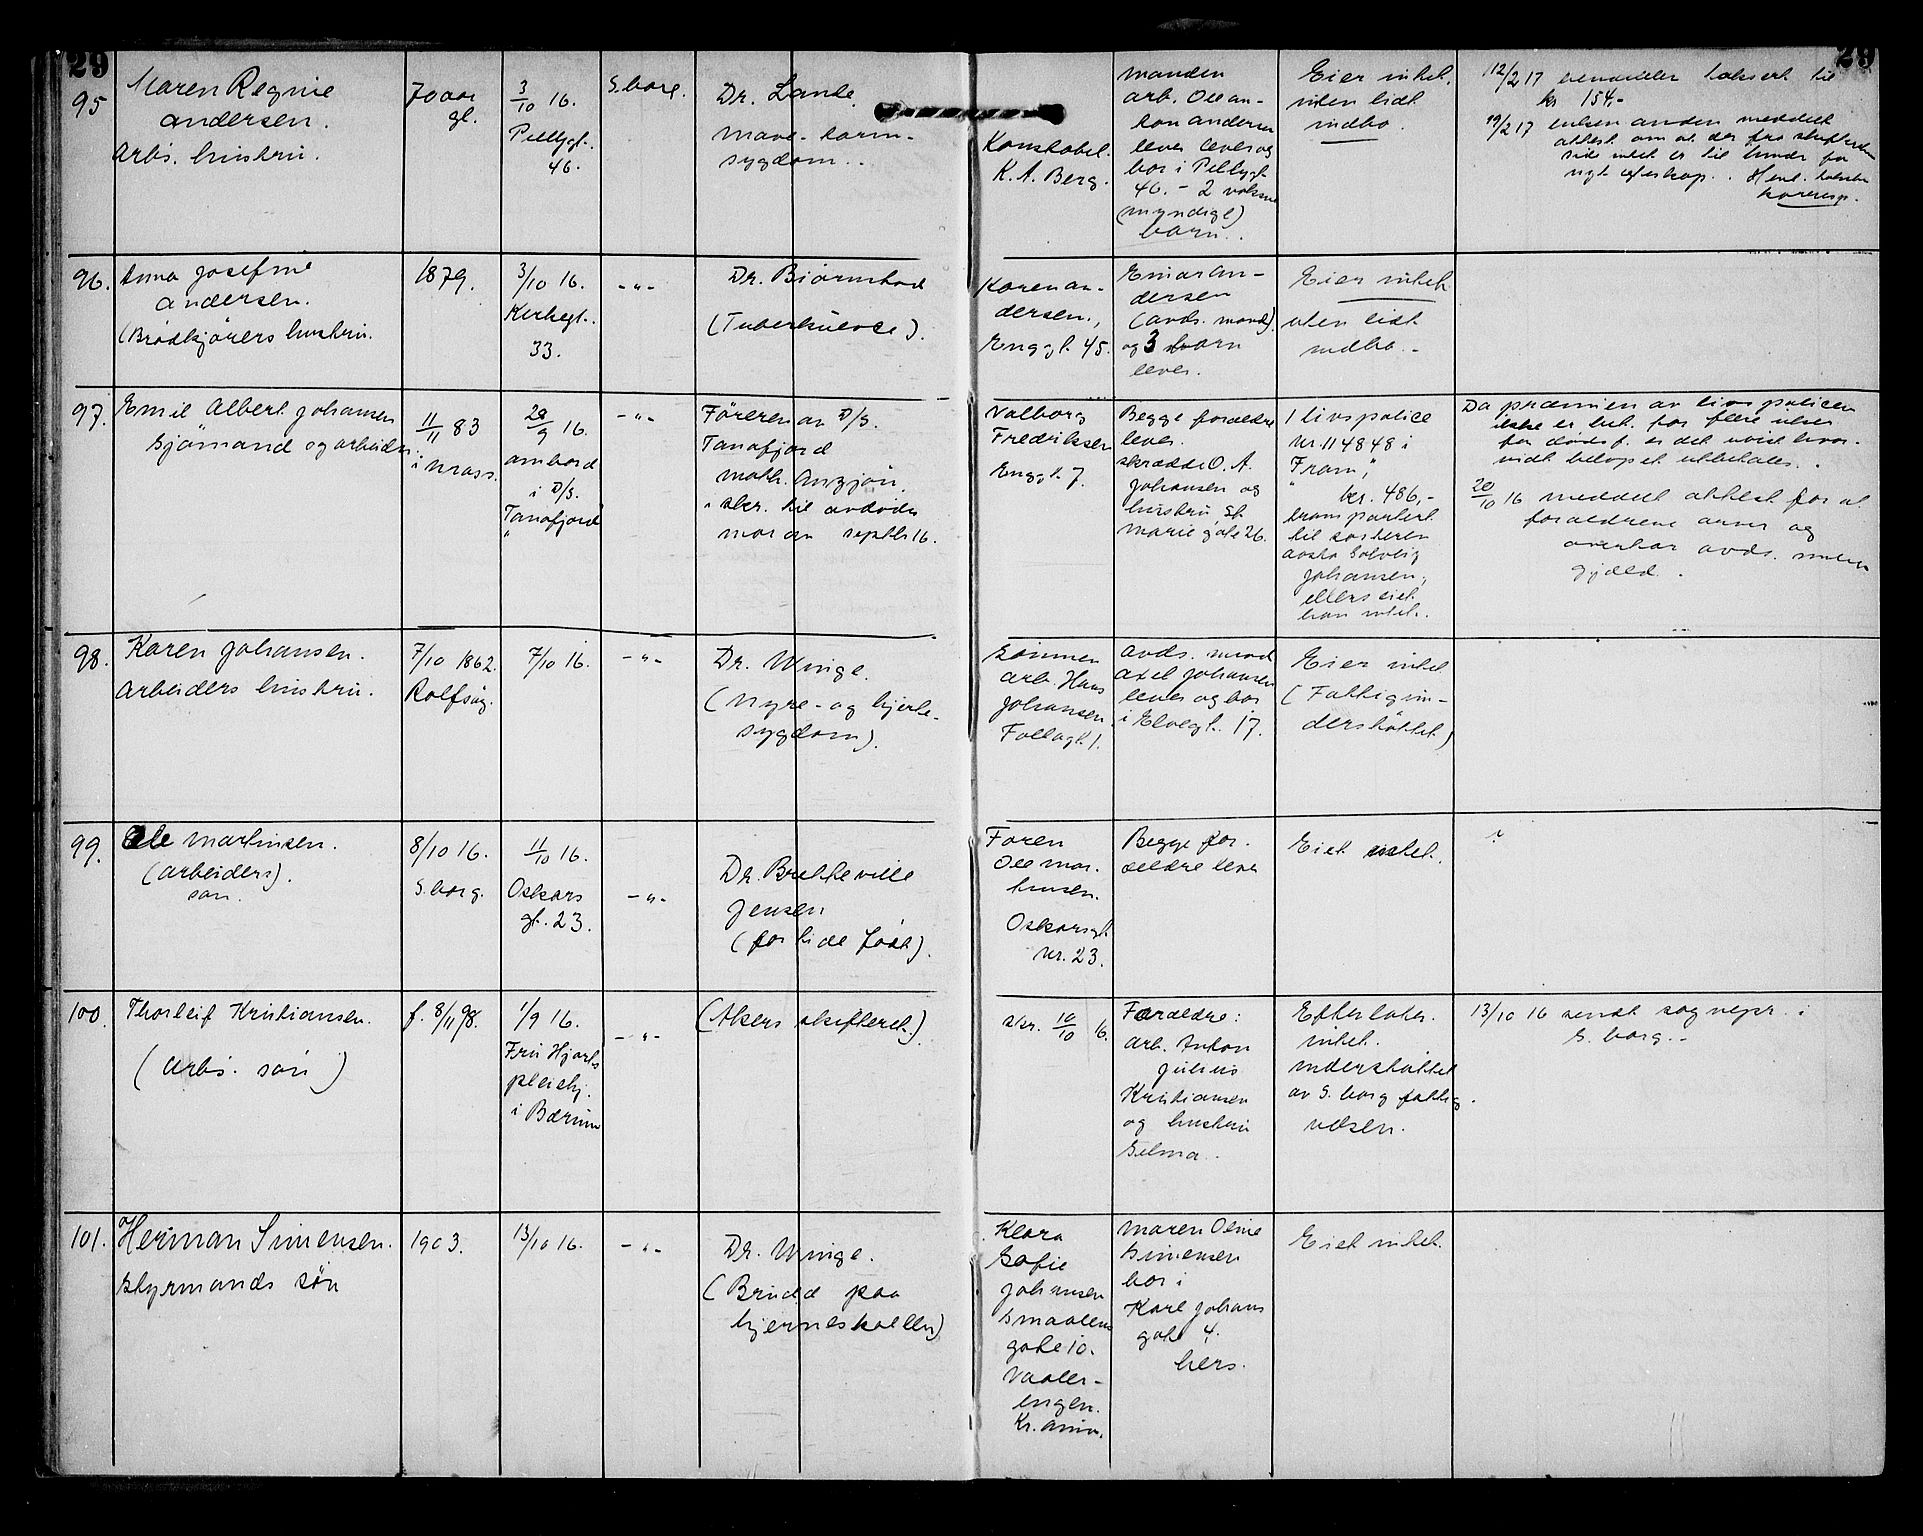 29
95
Maren Regine
Andersen.
Arbs. hustru.
70 aar
gl.
3/10 16.
Pellygt.
46.
S.borg.
Dr. Lande.
Mave-tarm-
sygdom.
Konstabel
K. A. Berg.
Manden
arb. Ole An-
ton Andersen
lever og
bor i Pellygt.
46. - 2 voksne
(myndige)
barn.
Eier intet
uten lidt
indbo.
12/2 17 taksert til
kr 154,-
19/2 17 meddelt
attest om at der fra skifterettens
side intet er til hinder for
nyt egteskap.
96.
Anna Josefine
Andersen.
(Brödkjörers hustru.
1879.
3/10 16.
Kirkegt.
33.
-"-
Dr. Björnstad
(Tuberkulose).
Karen An-
dersen,
Enggt. 45.
Einar An-
dersen
(avds. mand)
og 3 barn
lever.
Eier intet
uten lidt
indbo.-
97.
Emil Albert Johansen
Sjömand og arbeider.
11/11 83
i Moss.
28/9 16.
ombord
i D/S.
"Tanafjord"
-"-
Föreren av D/S.
Tanafjord
skr. til avdödes
mor av septbr 16.
Valborg
Fredriksen
Enggt. 7.
Begge foraeldre
lever.
skrädder O. A.
Johansen og
hustru St.
Marie gate 26.
1 livspolice
nr. 114848 i
"Fram",
kr. 486,-
transportert
til sösteren
Solveig
Johansen,
ellers eiet
han intet.
Da praemien av livspolicen
ikke er bet. for flere uker
för dödsf. er det uvist hvor-
vidt belöpet utbetales.
20/10 16 meddelt attest for at
foraeldrene arver og
overtar avds. mulige
gjaeld.
98.
Karen Johansen.
Arbeiders hustru.
7/10 1862.
Rolfsöy.
7/10 16.
-"-
Dr. Winge.
(Nyre- og hjerte-
sygdom).
Sönnen
arb. Hans
Johansen
Avds. mand
Axel Johansen
lever og bor
i Elvegt. 17.
Eier intet
(Fattigun-
derstöttet)
99.
Ole Martinsen.
(arbeiders).
sön.
8/10 16.
S.borg.
11/10 16.
Oskars
gt. 23.
-"-
Dr. Bretteville
Jensen
(for tidl. födt).
Faren
Ole Mar-
tinsen.
Oskarsgt.
nr. 23.
Begge for-
aeldre lever
Eiet intet.
100.
Thorleif Kristiansen.
(Arbs. sön)
f. 8/11 98.
1/9 16.
Fru Hjorts
pleiehj.
i Bærum
-"-
(Akers skifteret.)
skr. 10/10 16.
Foraeldre:
Arb. Anton
Julius
Kristiansen
og hustru
Selma.
Efterlater
intet.
understöttet
av S.borg fattig
vaesen.
13/10 16 sendt sognepr. i
S.borg.-
101.
Herman Simensen.
Styrmands sön
1903.
13/10 16.
-"-
Dr. Winge.
(Brudd paa
hjerneskallen)
Klara
Sofie
Johansen
Smaalens
gate 10.
Vaaler-
engen.
Kr.ania.
Maren Oline
Simensen
bor i
Karl Johans
gate 4.
hers.
Eiet intet.